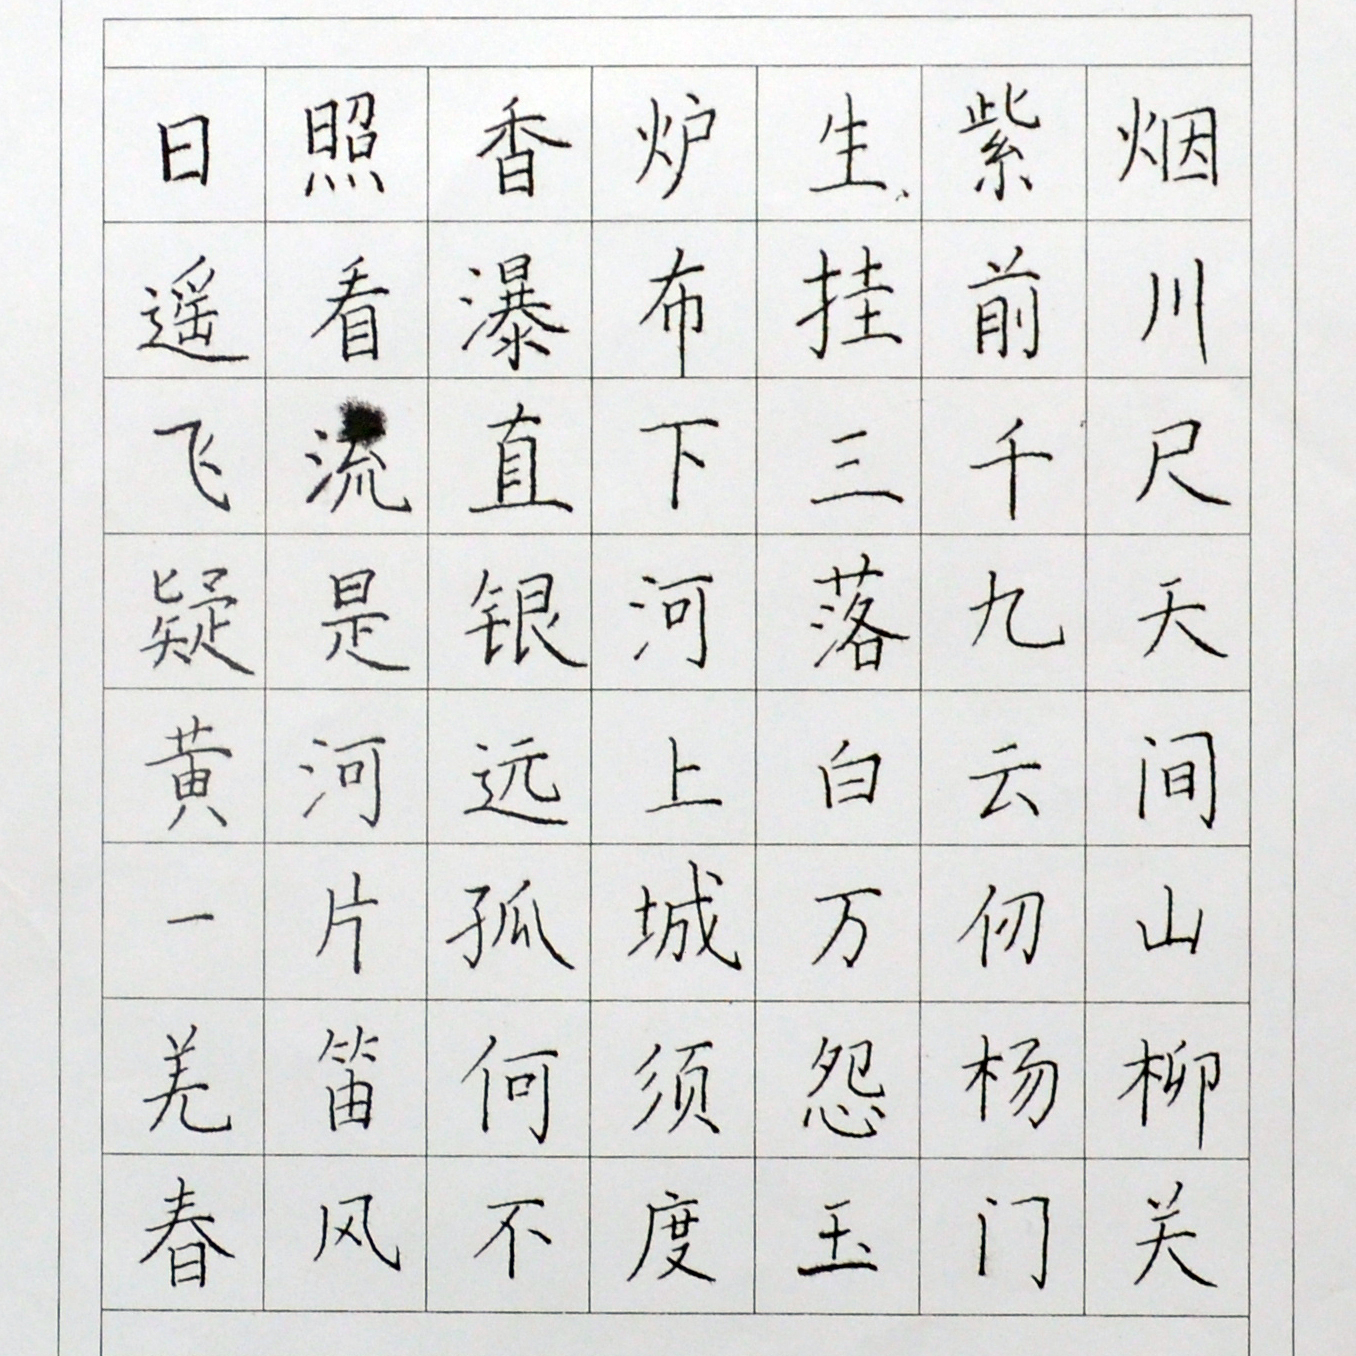 日照香炉生紫烟
遥看瀑布挂前川
飞流直下三千尺
疑是银河落九天
黄河远上白云间
一片孤城万仞山
羌笛何须怨杨柳
春风不度玉门关